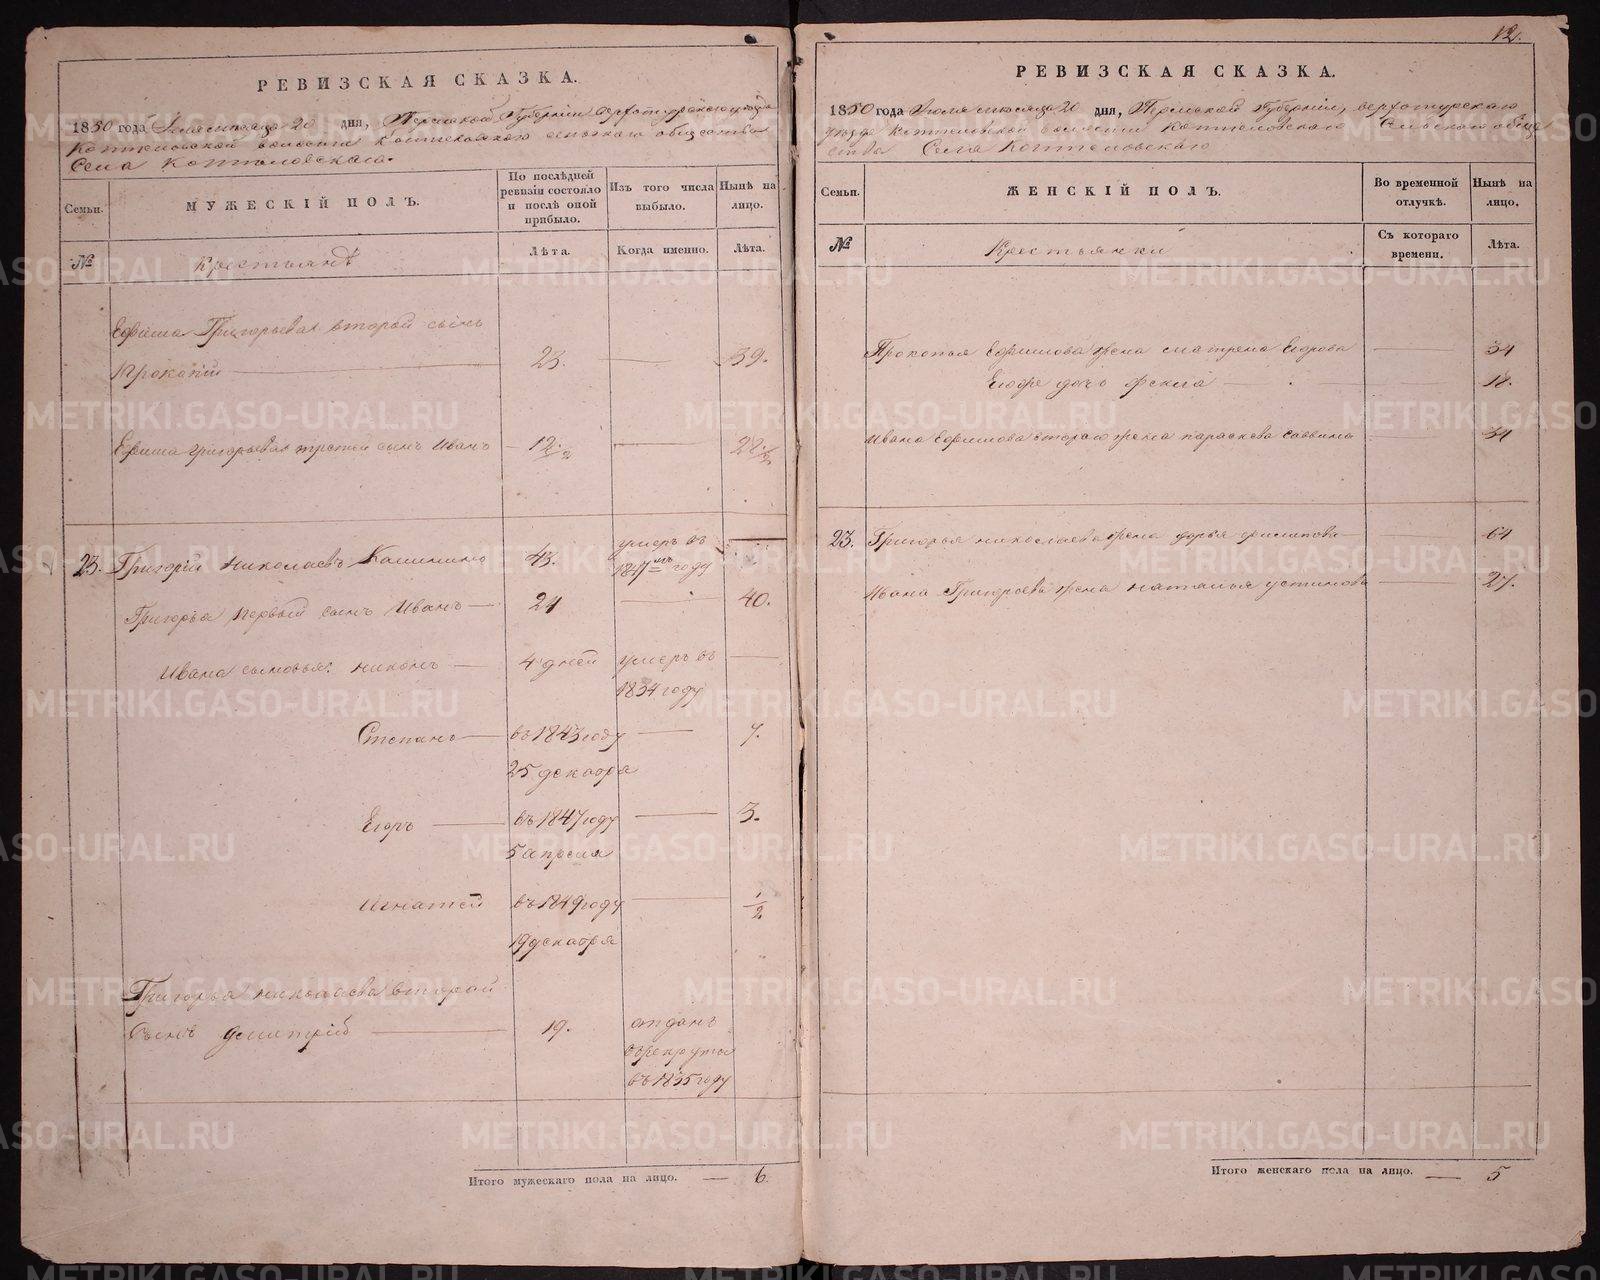 РЕВИЗСКАЯ СКАЗКА.
1850 года Июля месяца 20 дня, Пермской Губернiи Верхотурскаго уезда
Коптеловской волости Коптеловскаго сельскаго общества
Села Коптеловскаго.
Семьи.
МУЖЕСКIЙ ПОЛЪ.
По послѣдней ревизiи состояло и послѣ оной прибыло.
Изъ того числа выбыло.
Нынѣ на лицо.
№
Крестьянѣ
Лѣта.
Когда именно.
Лѣта.
Ефима Григорьева второй сынъ
Прокопiй 23. 39.
Ефима Григорьева третiй сынъ Иванъ 12 1/2
23. Григорiй Николаевъ 43. умеръ въ
1847 году
Григорья первый сынъ Иванъ 24 40.
Ивана сыновья: Никонъ 4 дней умеръ въ
1834 году
Степанъ въ 1843 году 7.
25 декабря
Егоръ въ 1847 году 3.
5 апреля
Игнатей въ 1849 году 1/2
19 декабря
Григорья Николаева второй
сынъ Дмитрiй 19. отданъ
в рекруты
въ 1835 году
Итого мужескаго пола на лицо. 6.
12.
РЕВИЗСКАЯ СКАЗКА.
1850 года Июля месяца 20 дня, Пермской Губернiи, Верхотурскаго
уезда Коптеловской волости Коптеловскаго Сельскаго обще
ства Села Коптеловскаго
Семьи.
ЖЕНСКIЙ ПОЛЪ.
Во временной отлучкѣ.
Нынѣ на лицо.
№
Крестьянки
Съ котораго времени.
Лѣта.
Прокопья Ефимова жена Матрена Егорова 34
дочь Фекла 12.
Ивана Ефимова втораго жена Параскева Саввина 34
23. Григорья Николаева жена Дарья 64
Ивана Григорьева жена Наталья Устинова 27.
Итого женскаго пола на лицо. 5
METRIKI.GASO-URAL.RU